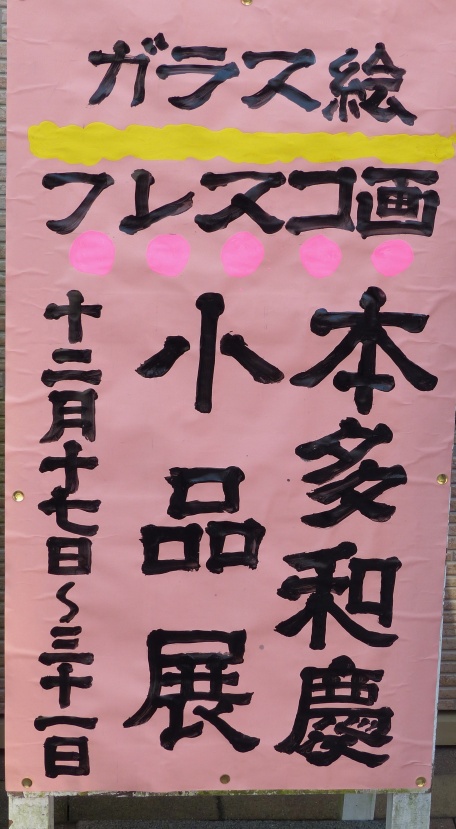 ガラス絵
フレスコ画
本多和慶
小品展
十二月十七日〜三十一日